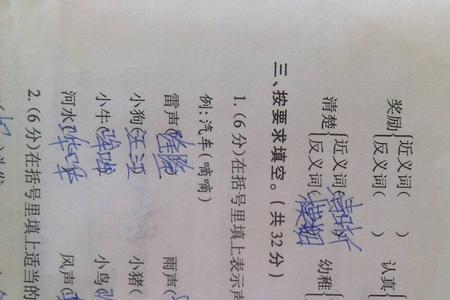 奖励{近义词( )
反义词( )
认真{
清楚{近义词(清晰
反义词(模糊
幼稚{
三、按要求填空。(共32分)
1.(6分)在括号里填上表示声
例:汽车(嘀嘀)
雷声(隆隆 雨声(
小狗(汪汪 小猪(
小牛(哞哞 小鸟(
河水(哗哗 风声(
2.(6分)在括号里填上适当的